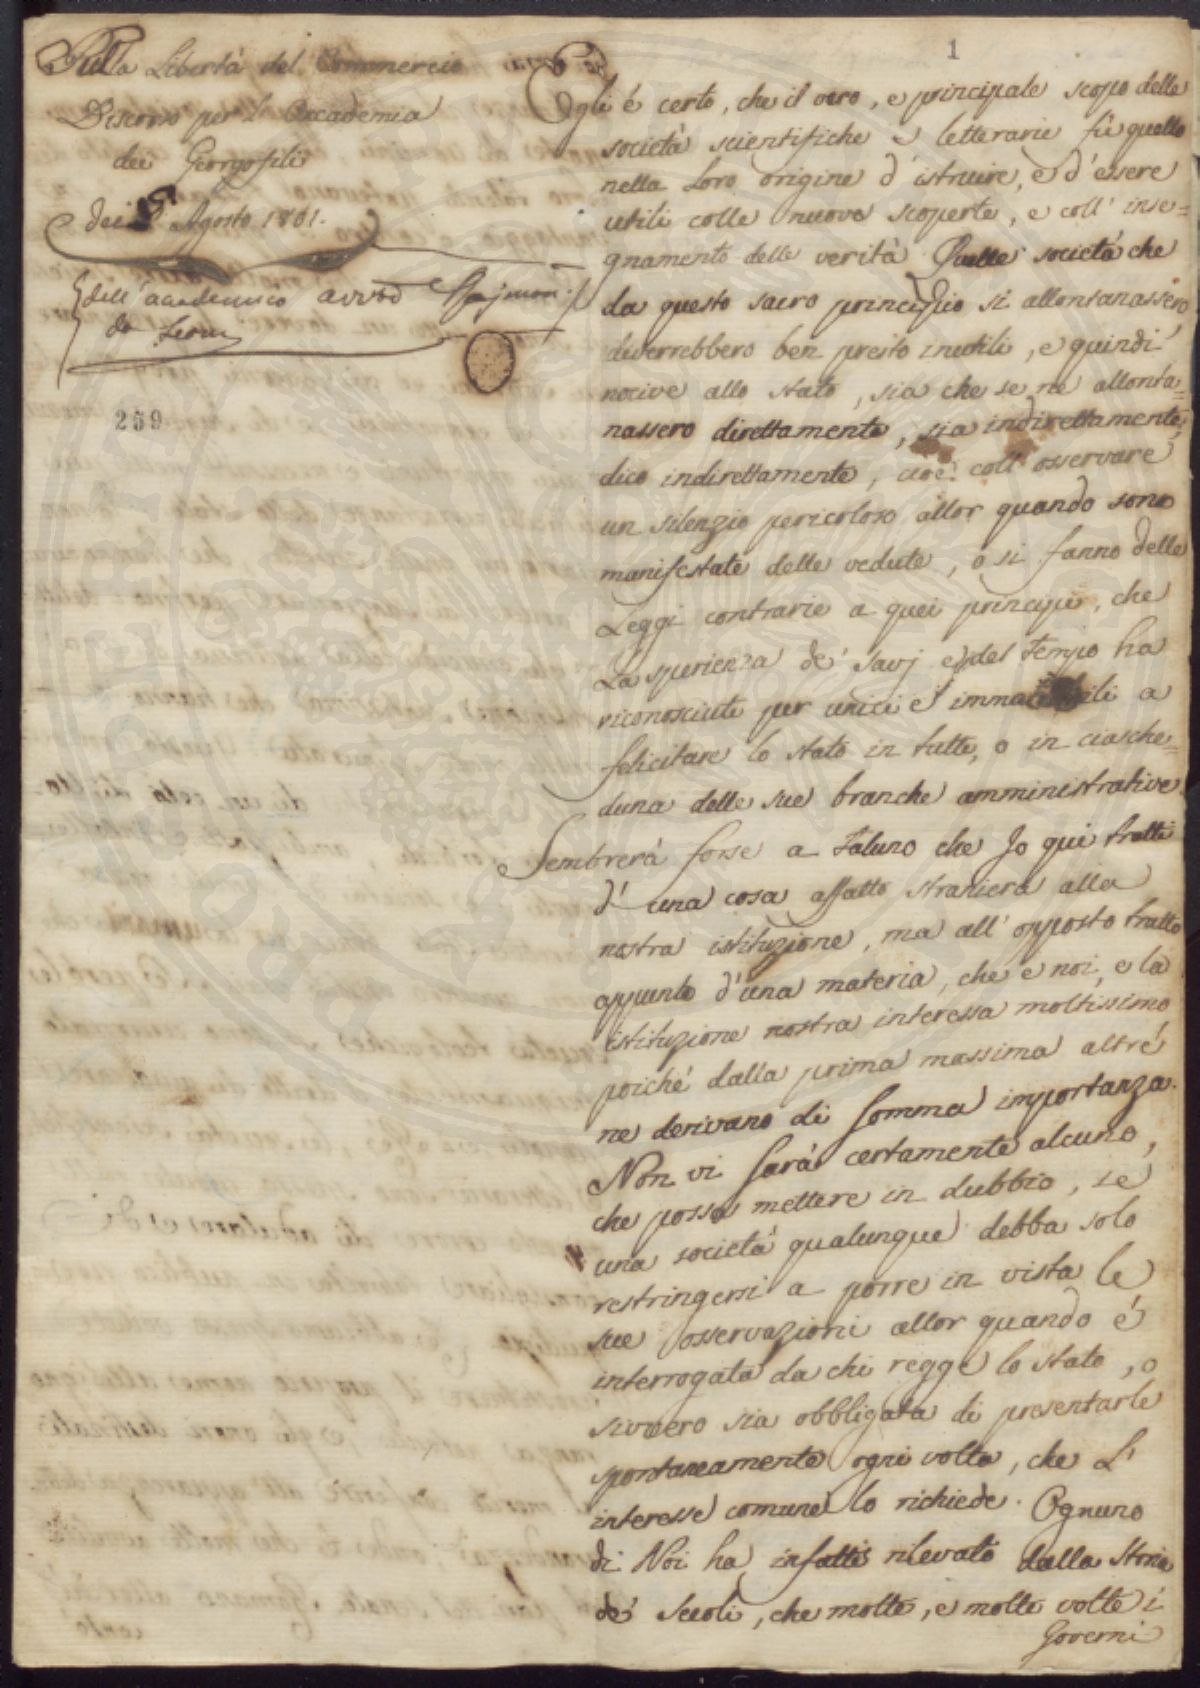 Sulla Libertà del Commercio
Discorso per l'Accademia
dei Georgofili
dei Agosto 1801.
dell'accademico avvo Rajmon:
do Leoni
259
1
Egli é certo, che il vero, e principale scopo delle
società scientifiche e letterarie fù quello
nella Loro origine d'istruire, e d'essere
utili colle nuove scoperte, e coll'inse=
gnamento delle verità. Quelle società che
da questo sacro principio si allontanassero,
diverrebbero ben presto inutili, e quindi
nocive allo stato, sia che se ne allonta=
nassero direttamente, sia indirettamente,
dico indirettamente, cioè coll'osservare
un silenzio pericoloso allor quando sono
manifestate delle vedute, o si fanno delle
Leggi contrarie a quei principj, che
La sperienza de' Savj e del tempo ha
riconosciuti per unici e immutabili a
felicitare lo stato in tutte, o in ciasche=
duna delle sue branche amministrative.
Sembrerà forse a taluno che Jo qui tratti
d'una cosa affatto straniera alla
nostra istituzione, ma all'opposto tratto
appunto d'una materia, che e noi, e la
istituzione nostra interessa moltissimo
poiché dalla prima massima altre
ne derivano di somma importanza.
Non vi sarà certamente alcuno,
che possa mettere in dubbio, se
una società qualunque debba solo
restringersi a porre in vista le
sue osservazioni allor quando é
interrogata da chi regge lo stato, o
sivvero sia obbligata di presentarle
spontaneamente ogni volta, che L'
interesse comune lo richiede. Ognuno
di Noi ha infatti rilevato dalla storia
de' Secoli, che molte, e molte volte i
Governi